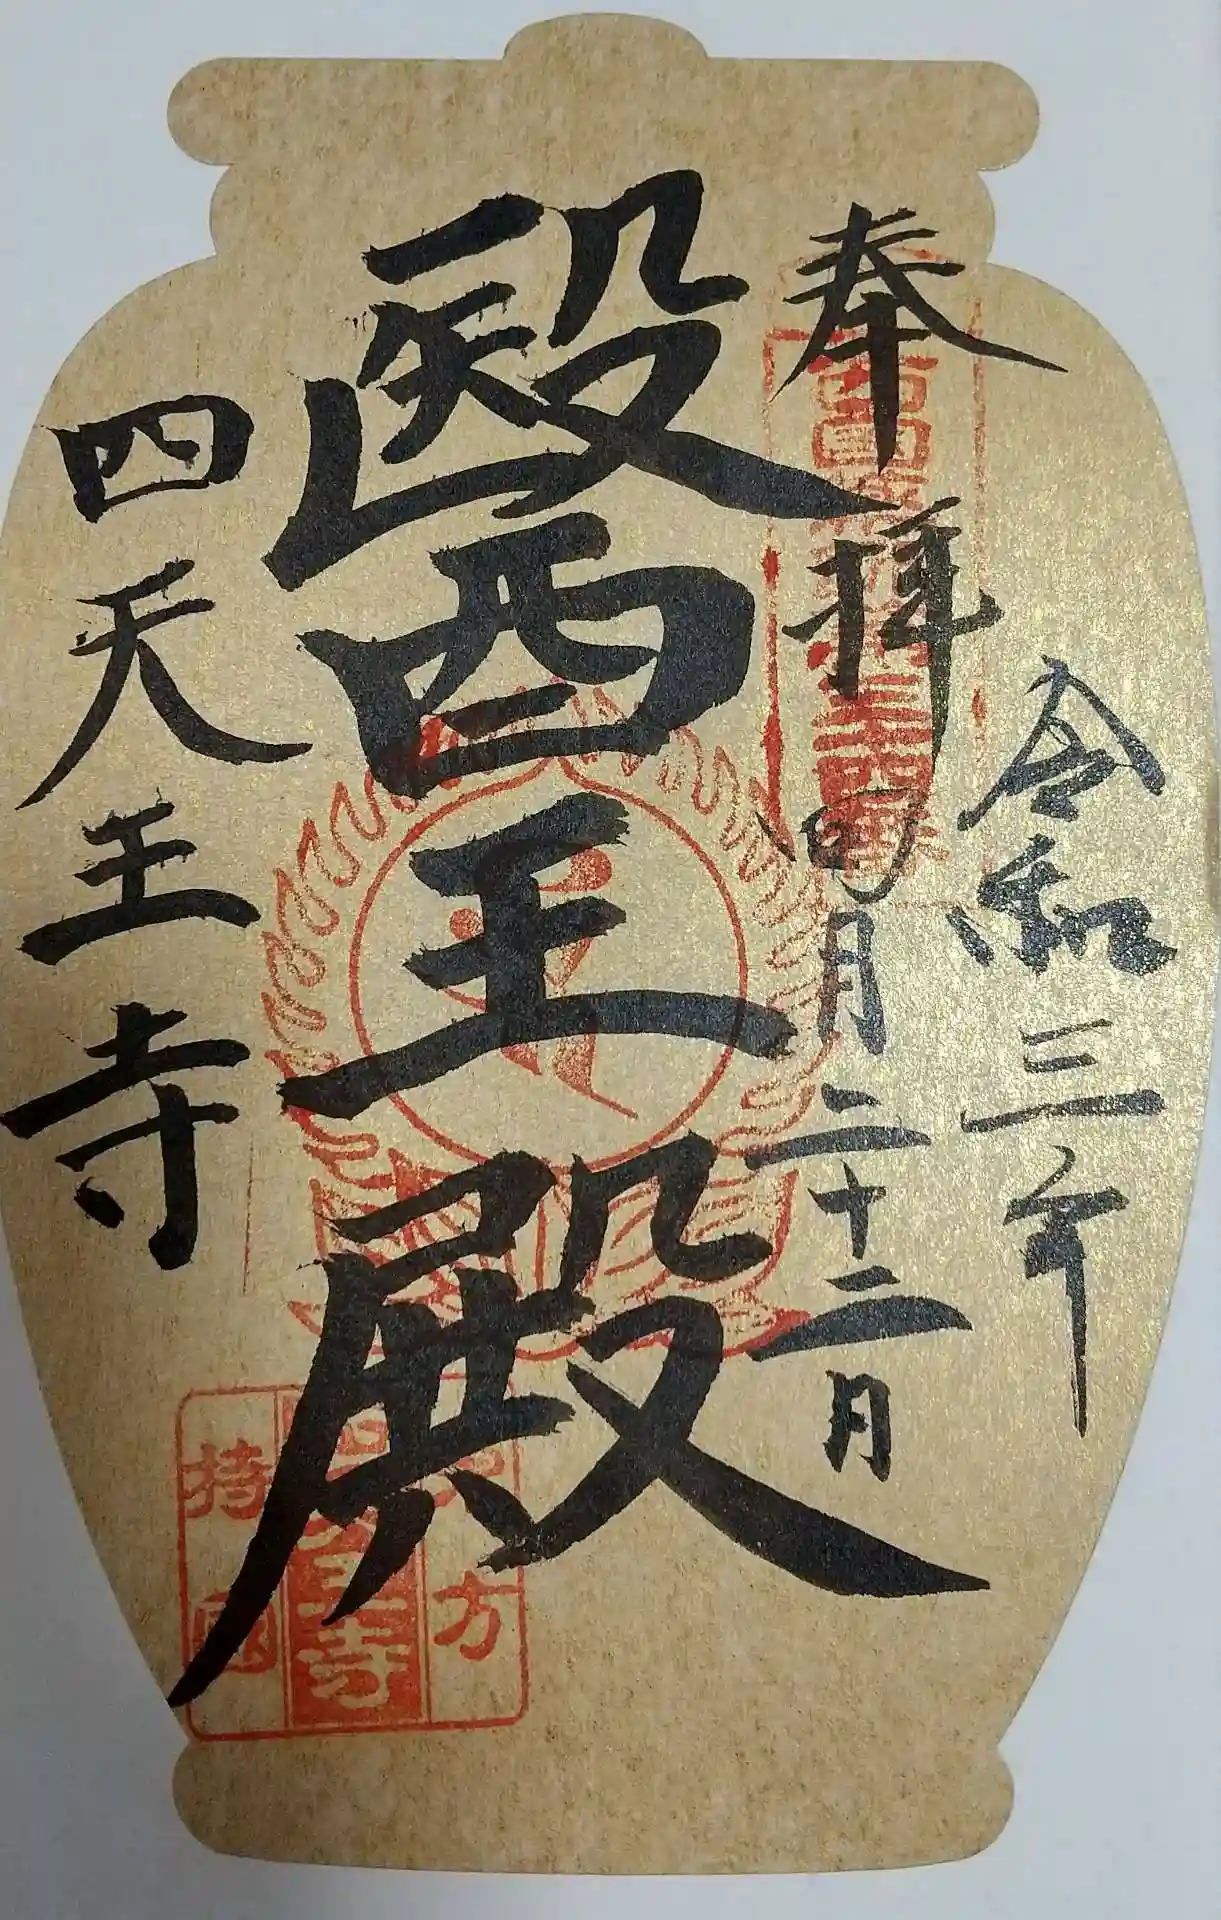 奉拝
令和三年
四月二十二日
醫王殿
四天王寺
方
持国
王寺